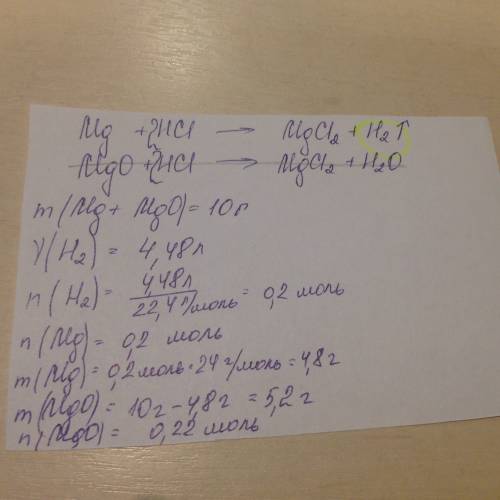 Mg + 2HCl → MgCl₂ + H₂↑
MgO + 2HCl → MgCl₂ + H₂O
m(Mg + MgO) = 10г
V(H₂) = 4,48л
n(H₂) = 4,48л / 22,4 л/моль = 0,2 моль
n(Mg) = 0,2 моль
m(Mg) = 0,2 моль · 24 г/моль = 4,8 г
m(MgO) = 10г − 4,8г = 5,2 г
n(MgO) = 0,22 моль